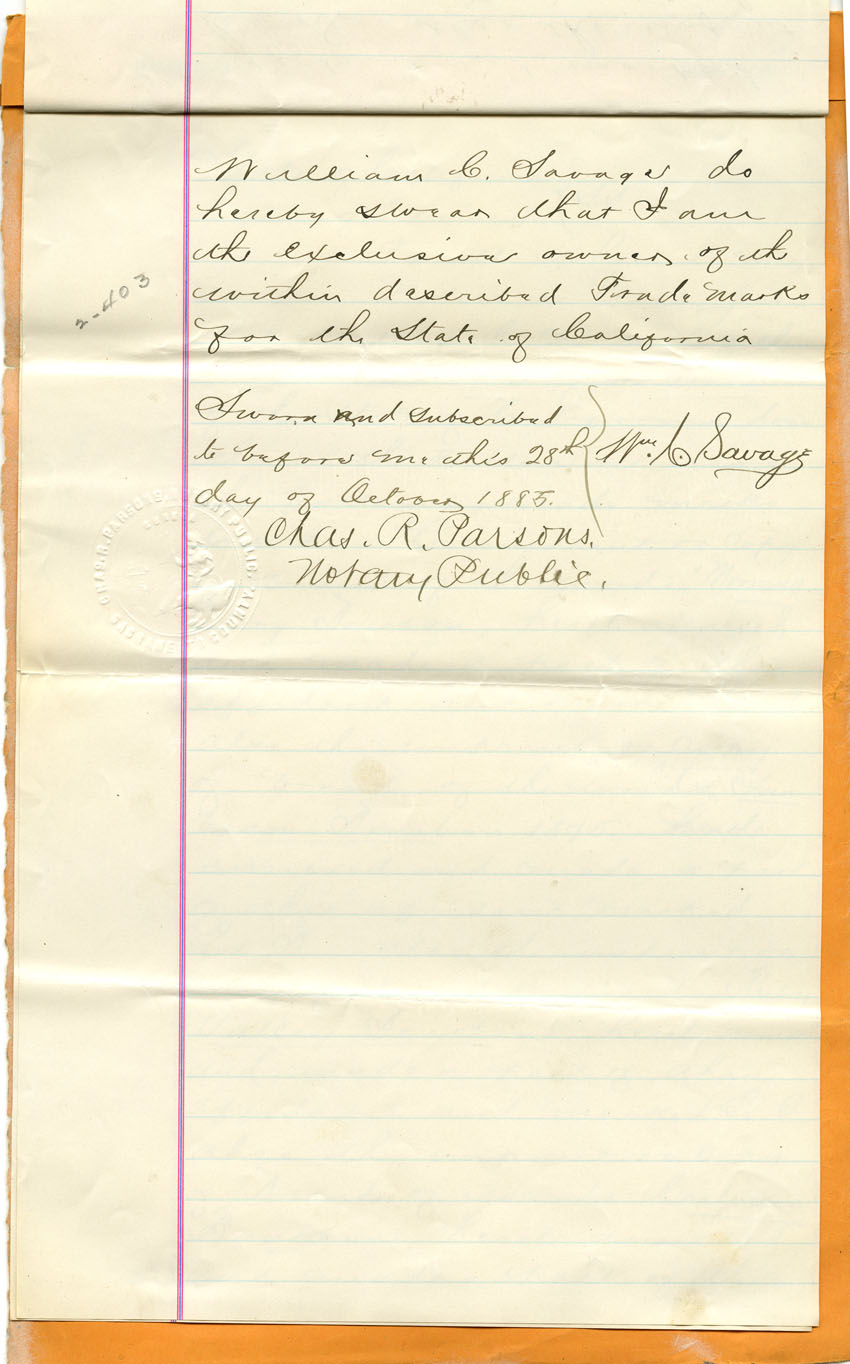 William C. Savage do
hereby swear that I am
the exclusive owner of the
within described Trade Marks
for the State of California
2-403
Sworn and subscribed
to before me this 28th
day of October 1885.
Wm. C Savage
Chas. R. Parsons.
Notary Public.
CHAS. R. PARSONS NOTARY PUBLIC. SACRAMENTO COUNTY.